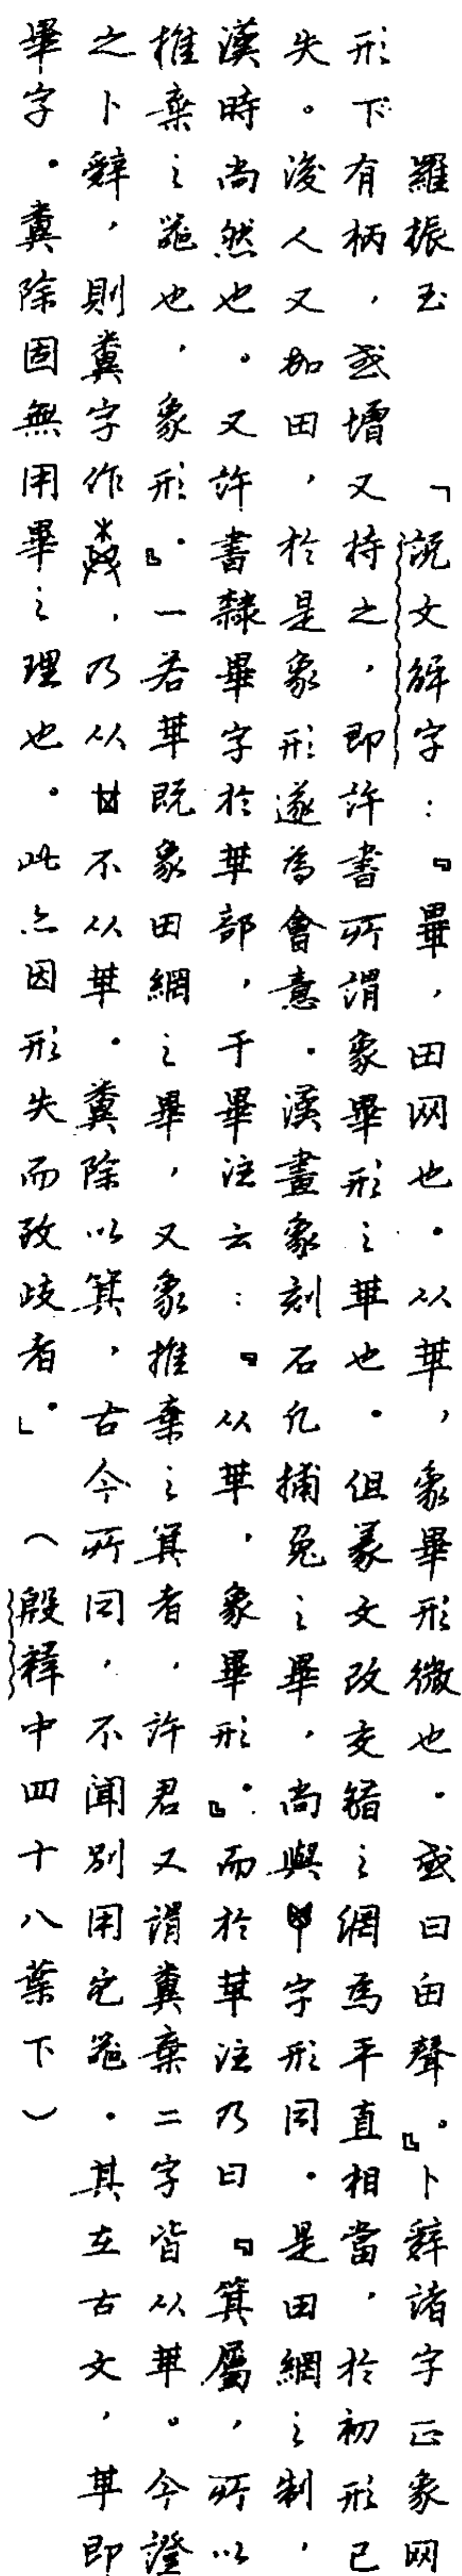 羅振玉　「說文解字：『畢，田网也。从𠦒，象畢形微也。或曰田聲。』卜辭諸字正象网
形下有柄，或增又持之，即許書所謂象畢形之𠦒也。但篆文改交錯之網為平直相當，於初形已
失。後人又加田，於是象形遂為會意。漢畫象刻石凡捕兔之畢，尚與字形同。是田網之制，
漢時尚然也。又許書隸畢字於𠦒部，于畢注云：『从𠦒，象畢形。』而於𠦒注乃曰『箕屬，所以
推棄之器也，象形。』一若𠦒既象田網之畢，又象推棄之箕者，許君又謂糞棄二字皆从𠦒。今證
之卜辭，則糞字作，乃从𠀠不从𠦒。糞除以箕，古今所同，不聞別用它器。其在古文，𠦒即
畢字。糞除固無用畢之理也。此亦因形失而致歧者。」（殷釋中四十八葉下）